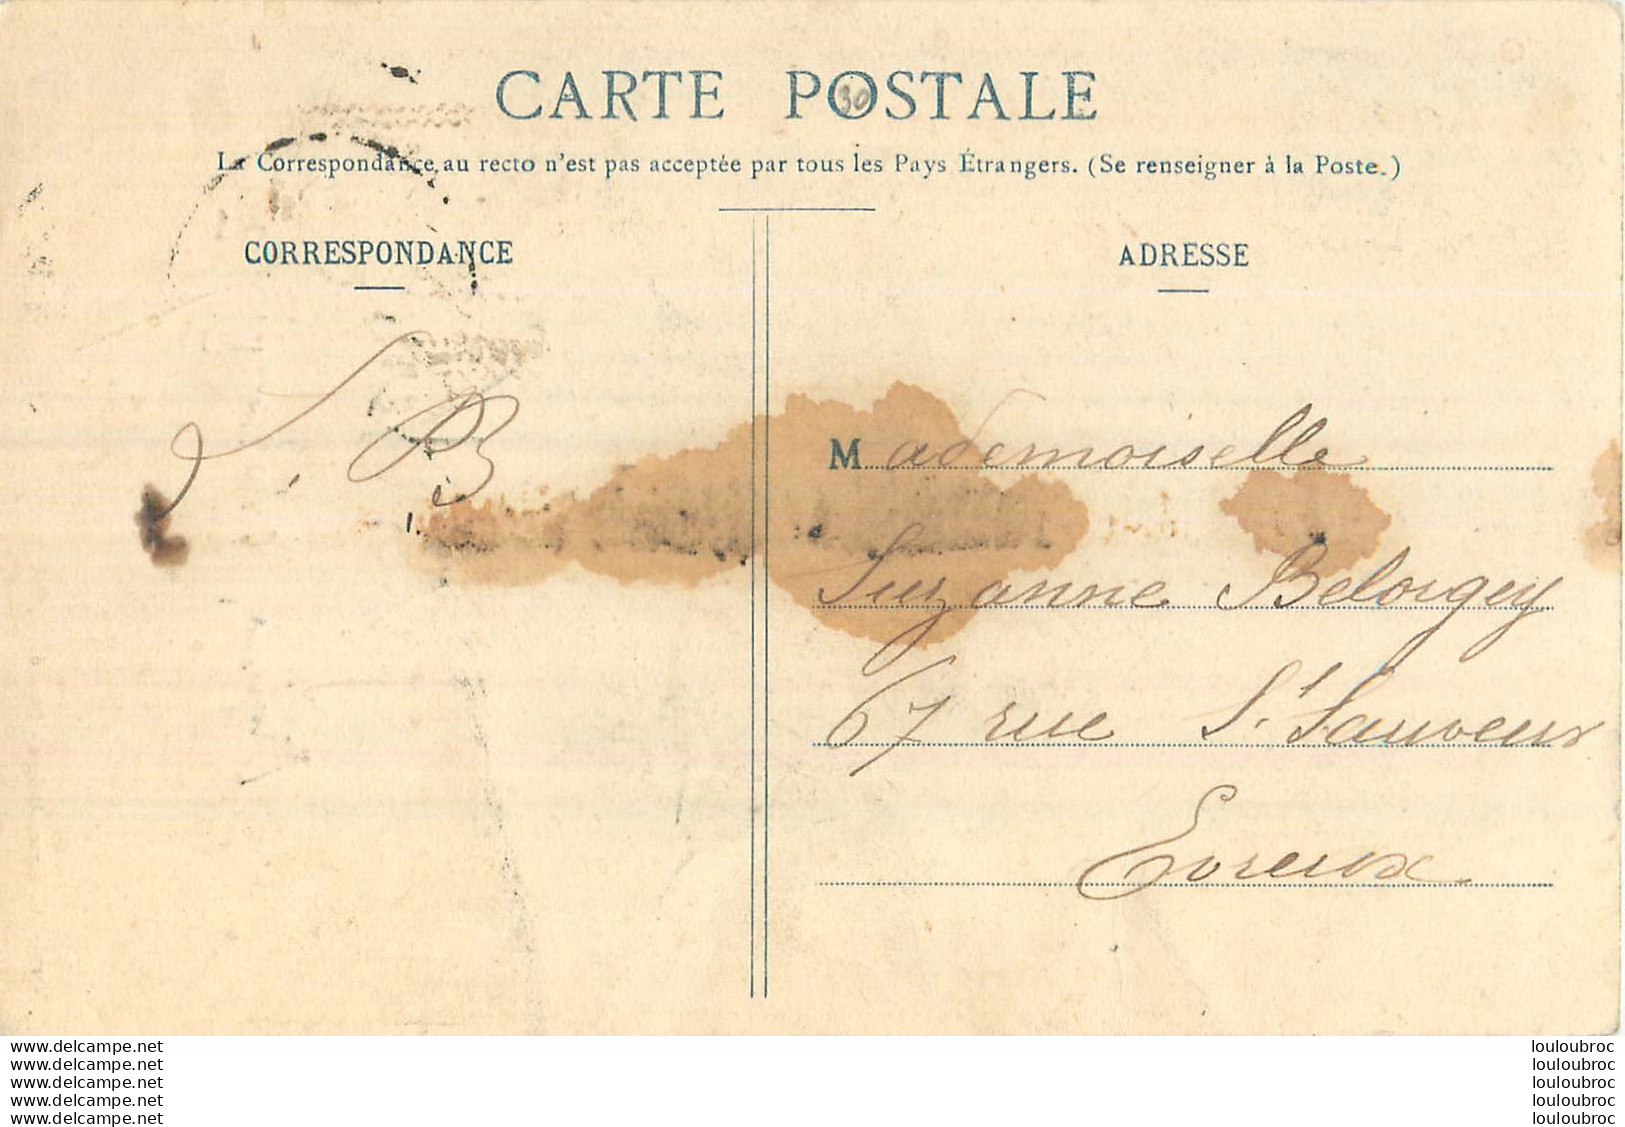 CARTE POSTALE
30
La Correspondance au recto n'est pas acceptée par tous les Pays Étrangers. (Se renseigner à la Poste.)
CORRESPONDANCE
ADRESSE
S. B
Mademoiselle
Suzanne Belorgey
67 rue St Sauveur
Evreux
www.delcampe.net
www.delcampe.net
www.delcampe.net
www.delcampe.net
www.delcampe.net
louloubroc
louloubroc
louloubroc
louloubroc
louloubroc